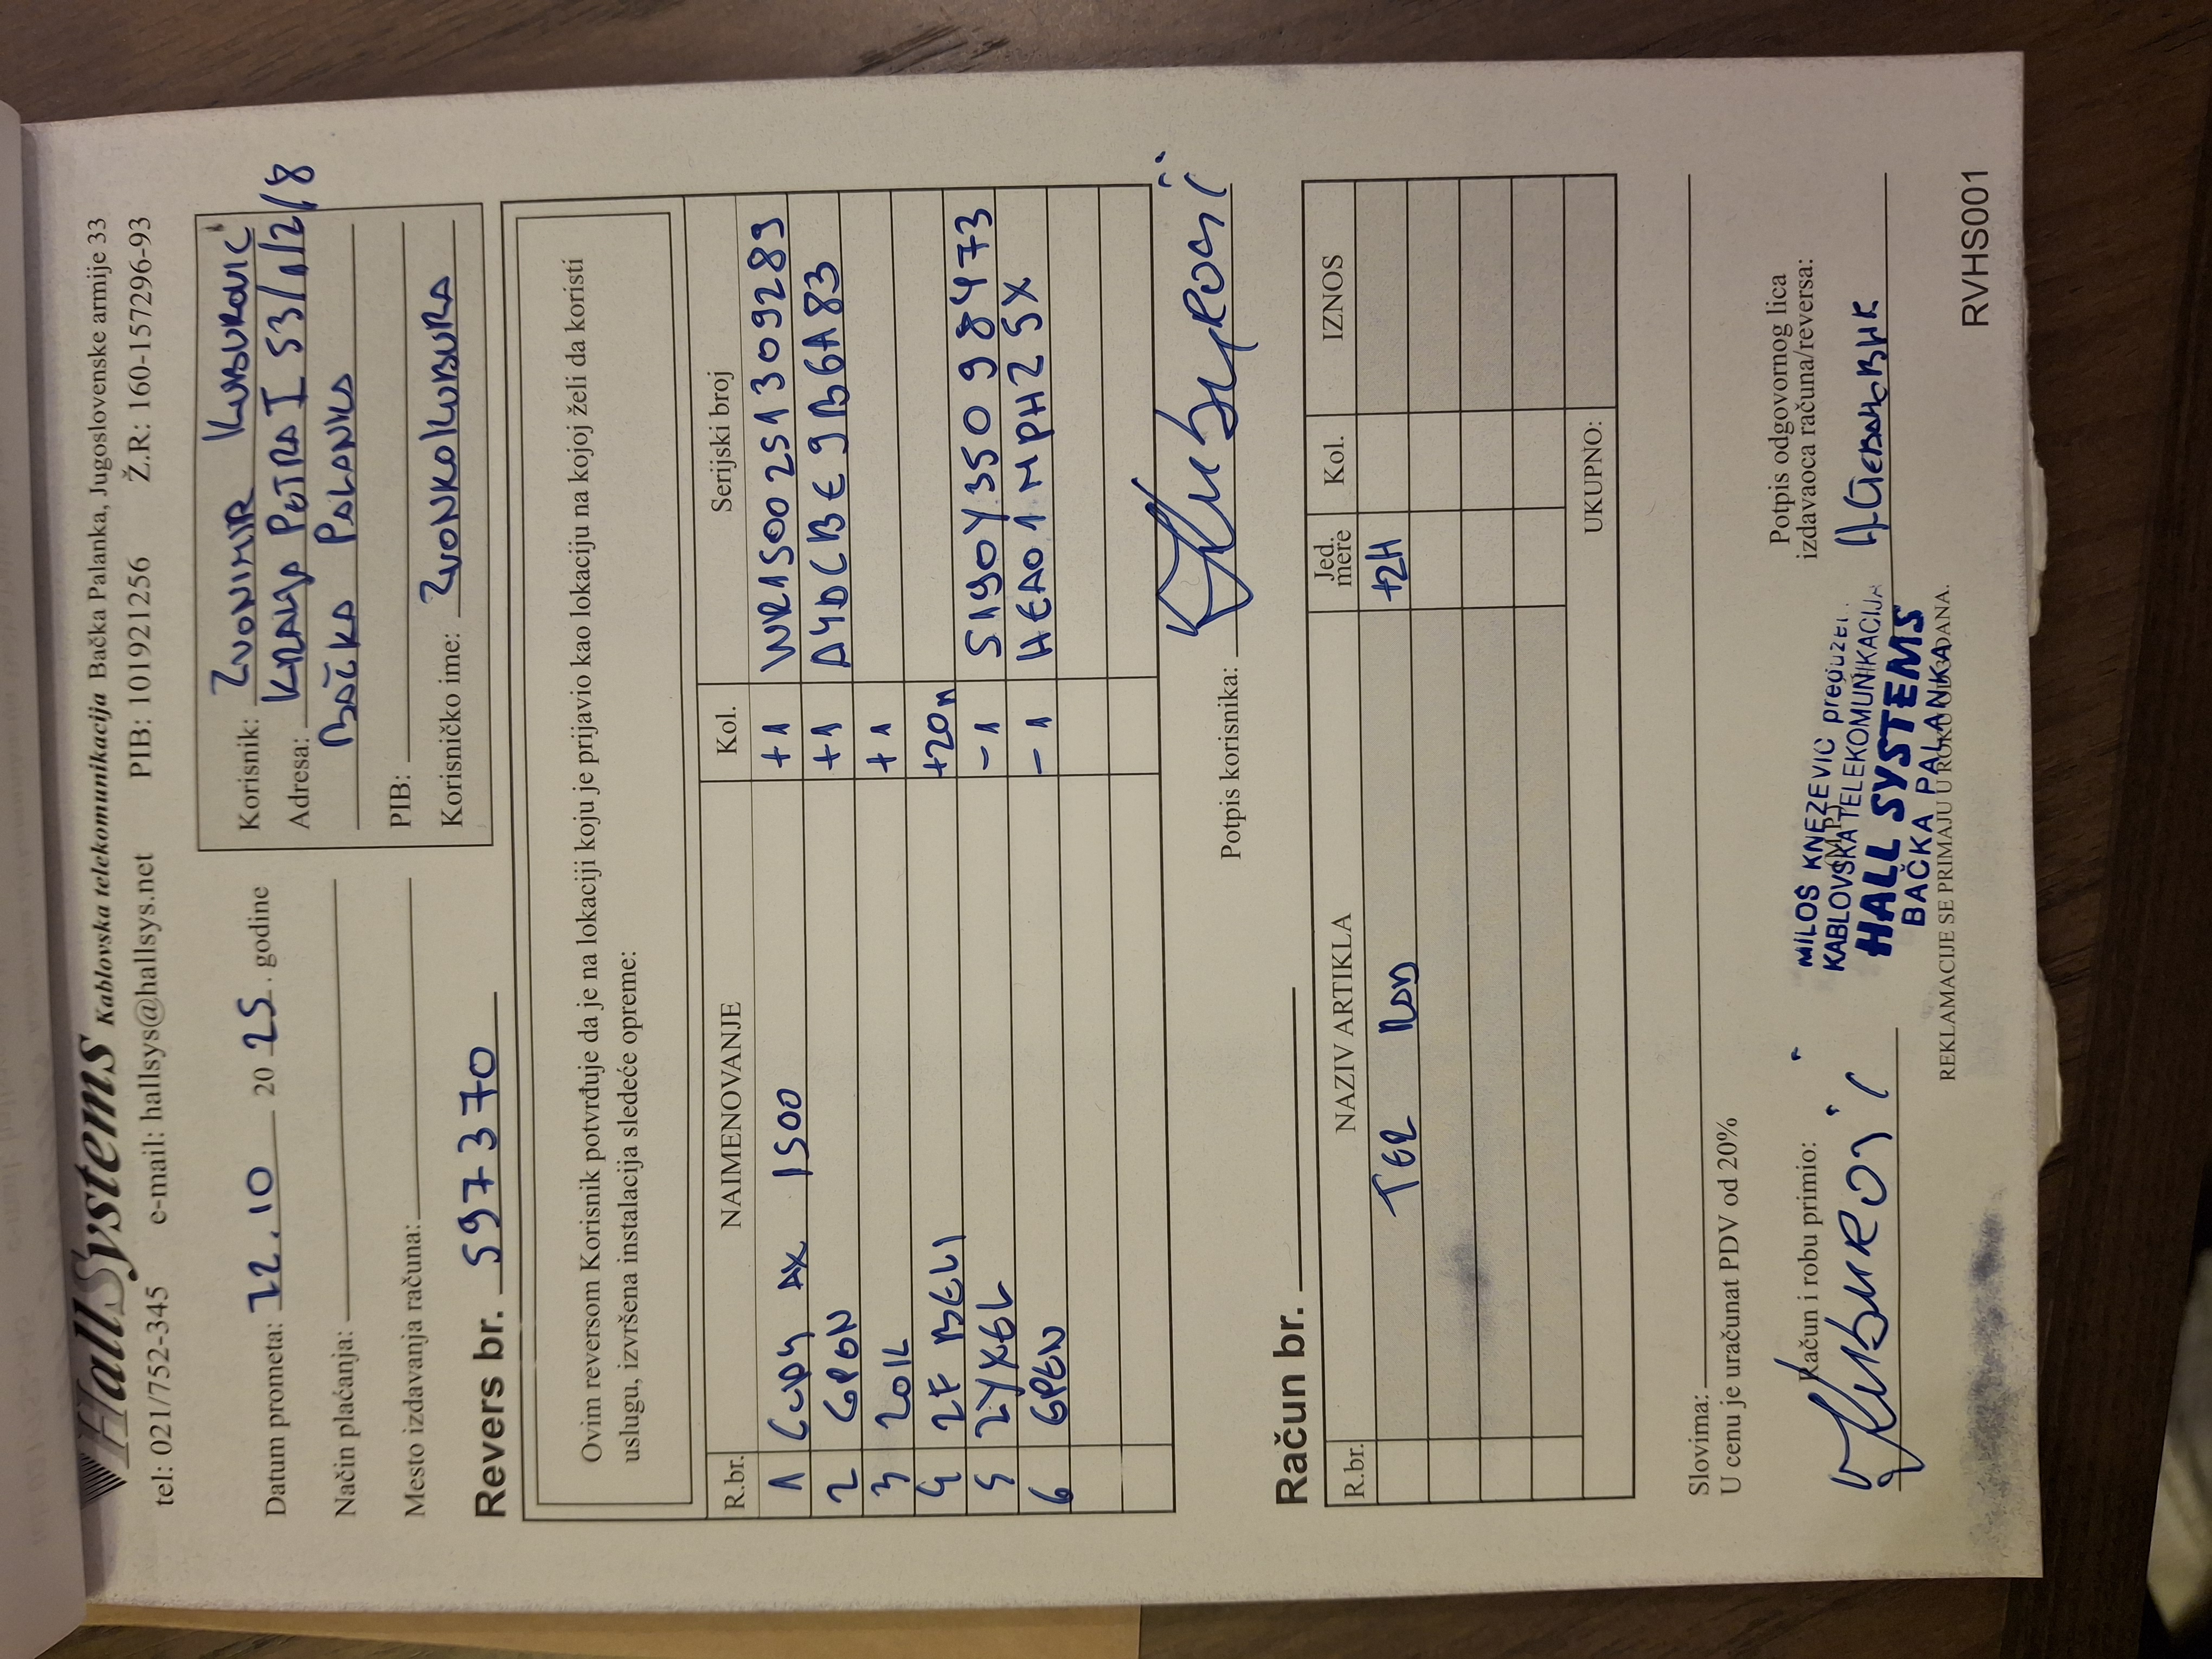 HallSystems Kablovska telekomunikacija Bačka Palanka, Jugoslovenske armije 33
tel: 021/752-345 e-mail: hallsys@hallsys.net PIB: 101921256 Ž.R: 160-157296-93
Datum prometa: 22.10 20 25. godine
Način plaćanja:
Mesto izdavanja računa:
Korisnik: ZVONIMIR KUBUROVIĆ
Adresa: KRALJA PETRA I 53/1/2/8
BAČKA PALANKA
PIB:
Korisničko ime: ZVONKOKUBURA
Revers br. 597370
Ovim reversom Korisnik potvrđuje da je na lokaciji koju je prijavio kao lokaciju na kojoj želi da koristi
uslugu, izvršena instalacija sledeće opreme:
R.br. NAIMENOVANJE Kol. Serijski broj
1 CUDY AX 1500 +1 WR1500251309289
2 GPON +1 A4DCBE9B6A83
3 ZOIL +1
4 2F BELI +20m
5 ZYXEL -1 S190Y35098473
6 GPON -1 HEA01MPH25X
Potpis korisnika:
Račun br.
R.br. NAZIV ARTIKLA Jed. mere Kol. IZNOS
TEL +2H
UKUPNO:
Slovima:
U cenu je uračunat PDV od 20%
Račun i robu primio:
Potpis odgovornog lica
izdavaoca računa/reversa:
(M.P.)
MILOŠ KNEŽEVIĆ preduzet.
KABLOVSKA TELEKOMUNIKACIJA
HALL SYSTEMS
BAČKA PALANKA
REKLAMACIJE SE PRIMAJU U ROKU OD 8 DANA.
RVHS001